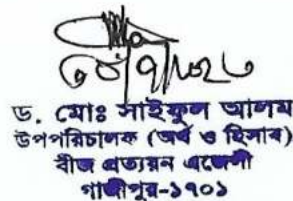 ড. মোঃ সাইফুল আলম
উপপরিচালক (অর্থ ও হিসাব)
বীজ প্রত্যয়ন এজেন্সী
গাজীপুর-১৭০১